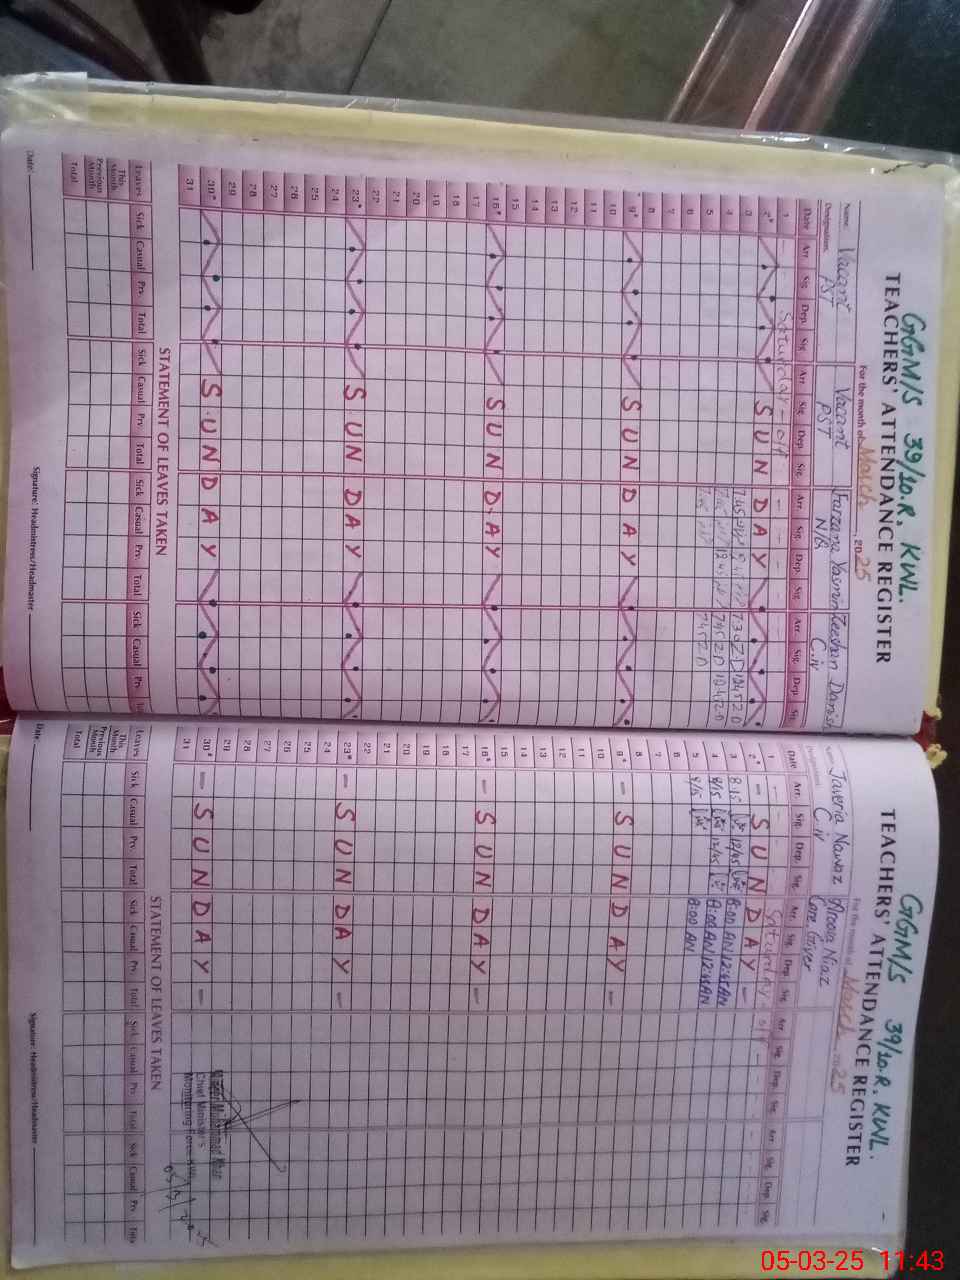 GGM/S 39/10.R. KWL.
TEACHERS' ATTENDANCE REGISTER
For the month of March 2025
Name: Vacant Vacant Farzana Yasmin Zeeshan Danish
Designation: PST PST N/Q C.iv
Date Arr. Sig. Dep. Sig. Arr. Sig. Dep. Sig. Arr. Sig. Dep. Sig. Arr. Sig. Dep. Sig.
1 Saturday - off
2* SUNDAY
3 7:45 7:30 ZD 1245 ZD
4 7:45 12:45 7:45 ZD 1245 ZD
5 7:45 7:45 ZD
6
7
8
9* SUNDAY
10
11
12
13
14
15
16* SUNDAY
17
18
19
20
21
22
23* SUNDAY
24
25
26
27
28
29
30* SUNDAY
31
STATEMENT OF LEAVES TAKEN
Leaves Sick Casual Prv. Total Sick Casual Prv. Total Sick Casual Prv. Total Sick Casual Prv.
This Month
Previous Month
Total
Date: Signature: Headmistress/Headmaster
GGM/S 39/10.R. KWL.
TEACHERS' ATTENDANCE REGISTER
For the month of March 2025
Name: Javeria Nawaz Niaz
Designation: C.iv Care Giver
Date Arr. Sig. Dep. Sig. Arr. Sig. Dep. Sig. Arr. Sig. Dep. Sig. Arr. Sig. Dep. Sig.
1 Saturday off
2* SUNDAY
3 8:15 12/45 8:00 AN 12:45 AN
4 8/15 12/45 8:00 AN 12:45 AN
5 8/15 8:00 AN
6
7
8
9* SUNDAY
10
11
12
13
14
15
16* SUNDAY
17
18
19
20
21
22
23* SUNDAY
24
25
26
27
28
29
30* SUNDAY
31
Muhammad
Chief Minister's
Monitoring Force
STATEMENT OF LEAVES TAKEN
Leaves Sick Casual Prv. Total Sick Casual Prv. Total Sick Casual Prv. Total Sick Casual Prv. Total
This Month
Previous Month
Total
Date: Signature: Headmistress/Headmaster
05-03-25 11:43